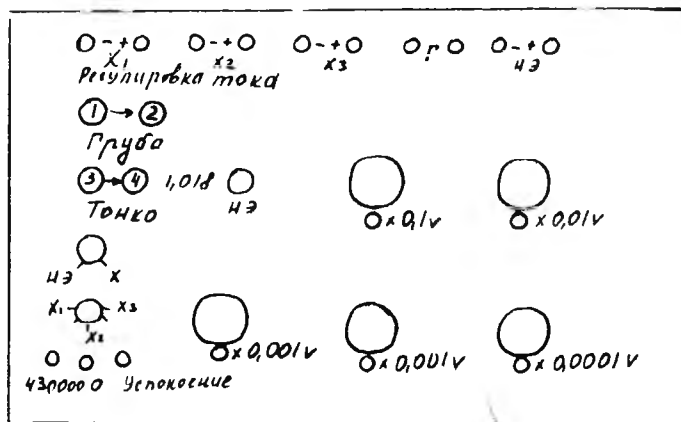 - + - + - + Г - +
X1 X2 X3 НЭ
Регулировка тока
1 → 2
Грубо
3 → 4 1,018
Тонко НЭ
× 0,1v × 0,01v
НЭ X
X1 X3
X2
× 0,001v × 0,001v × 0,0001v
430000 0 Успокоение